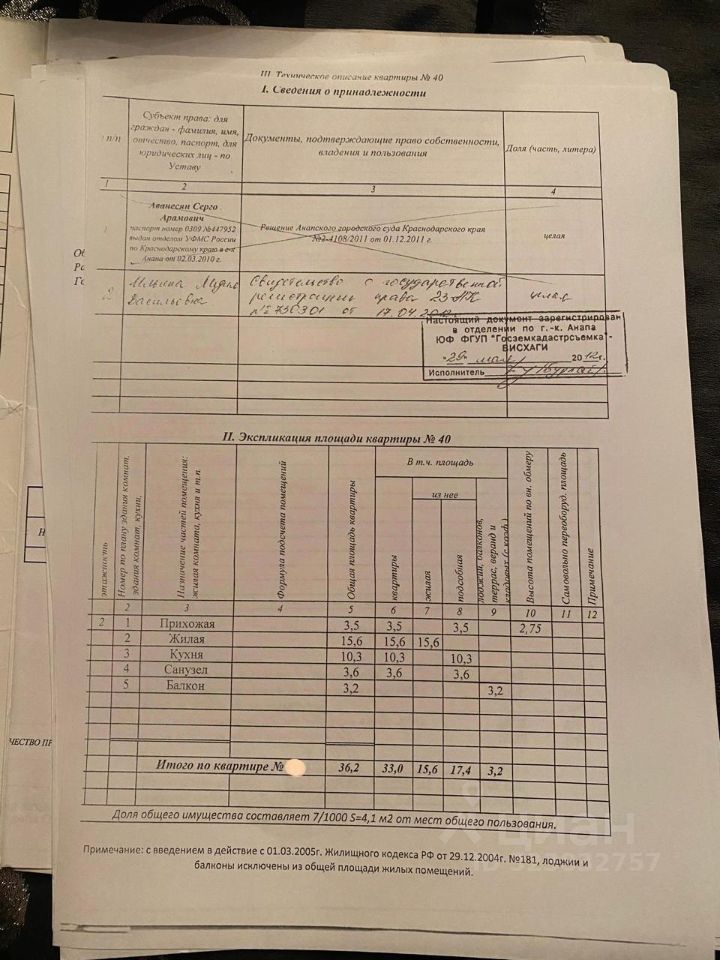 III. Техническое описание квартиры № 40
I. Сведения о принадлежности
п/п
Субъект права: для
граждан - фамилия, имя,
отчество, паспорт, для
юридических лиц - по
Уставу
Документы, подтверждающие право собственности,
владения и пользования
Доля (часть, литера)
1 2 3 4
Аванесян Серго
Арамович
паспорт номер 0309 №447952
выдан отделом УФМС России
по Краснодарскому краю в
Анапа от 02.03.2010 г.
Решение Анапского городского суда Краснодарского края
№2-4108/2011 от 01.12.2011 г.
целая
2
Васильевна
Свидетельство о государственной
регистрации права 23-АК
№ 736301 от 17.04.2012г.
целая
Настоящий документ зарегистрирован
в отделении по г.-к. Анапа
ЮФ ФГУП "Госземкадастрсъемка"-
ВИСХАГИ
"29" мая 2012г.
Исполнитель
II. Экспликация площади квартиры № 40
этажность
Номер по плану здания комнат,
здания комнат, кухни,
Назначение частей помещения:
жилая комната, кухня и т.п.
Формула подсчета помещений
Общая площадь квартиры
В т.ч. площадь
квартиры
из нее
жилая
подсобная
лоджий, балконов,
террас, веранд и
кладовых (с коэф.)
Высота помещений по вн. обмеру
Самовольно переоборуд. площадь
Примечание
2 3 4 5 6 7 8 9 10 11 12
2 1 Прихожая 3,5 3,5 3,5 2,75
2 Жилая 15,6 15,6 15,6
3 Кухня 10,3 10,3 10,3
4 Санузел 3,6 3,6 3,6
5 Балкон 3,2 3,2
Итого по квартире № 36,2 33,0 15,6 17,4 3,2
Доля общего имущества составляет 7/1000 S=4,1 м2 от мест общего пользования.
Примечание: с введением в действие с 01.03.2005г. Жилищного кодекса РФ от 29.12.2004г. №181, лоджии и
балконы исключены из общей площади жилых помещений.
циан